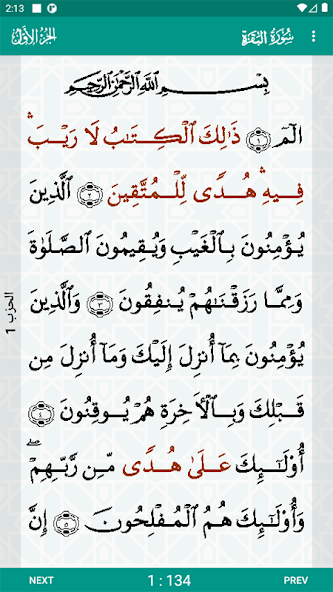 2:13
الجزء الأول سورة البقرة
بِسْمِ ٱللَّهِ ٱلرَّحْمَٰنِ ٱلرَّحِيمِ
الٓمٓ ١ ذَٰلِكَ ٱلْكِتَٰبُ لَا رَيْبَ ۛ
فِيهِ ۛ هُدًى لِّلْمُتَّقِينَ ٢ ٱلَّذِينَ
يُؤْمِنُونَ بِٱلْغَيْبِ وَيُقِيمُونَ ٱلصَّلَوٰةَ
وَمِمَّا رَزَقْنَٰهُمْ يُنفِقُونَ ٣ وَٱلَّذِينَ
يُؤْمِنُونَ بِمَآ أُنزِلَ إِلَيْكَ وَمَآ أُنزِلَ مِن
قَبْلِكَ وَبِٱلْءَاخِرَةِ هُمْ يُوقِنُونَ ٤
أُو۟لَٰٓئِكَ عَلَىٰ هُدًى مِّن رَّبِّهِمْ ۖ
وَأُو۟لَٰٓئِكَ هُمُ ٱلْمُفْلِحُونَ ٥ إِنَّ
الحزب 1
NEXT 1 : 134 PREV